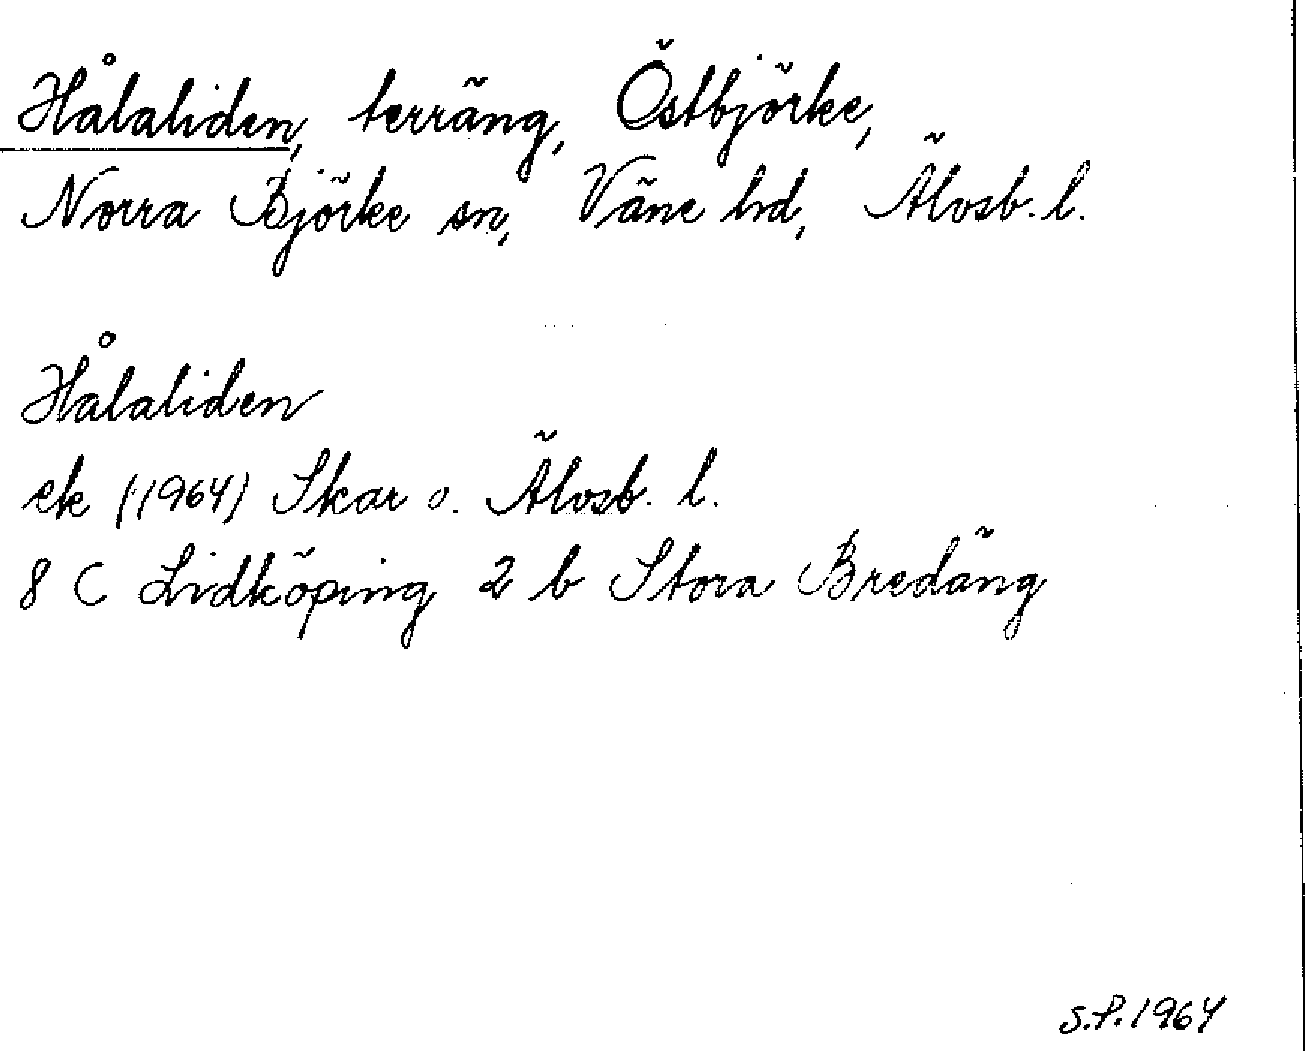 Hålaliden, terräng, Östbjörke,
Norra Björke sn, Väne hd, Älvsb. l.
Hålaliden
ek (1964) Skar o. Älvsb. l.
8 C Lidköping 2 b Stora Bredäng
S.P. 1964